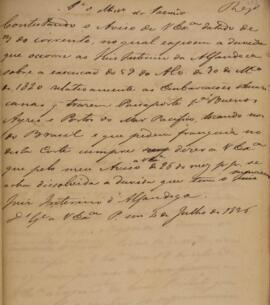 Contestando o Aviso de V Exª datado de
do corrente, no qual expoem a duvida
que occorre ao Juiz Interino da Alfandega
sobre a execução do § 9 do Al. de 30 de
de 1820 relativamente as Embarcaçoes
canas q trazem Passaporte pª Buenos
Ayres e Portos do Mar Pacifico, tocando nos
do Brasil e que pedem franquia no
desta Corte cumpre dizer a V Exª
que pelo meu Aviso de 25 do mez p.p. se
acha dissolvida a duvida que tem o
Juiz Interino d'Alfandega.
D. Gª a V Exª P. em de Julho de 1826